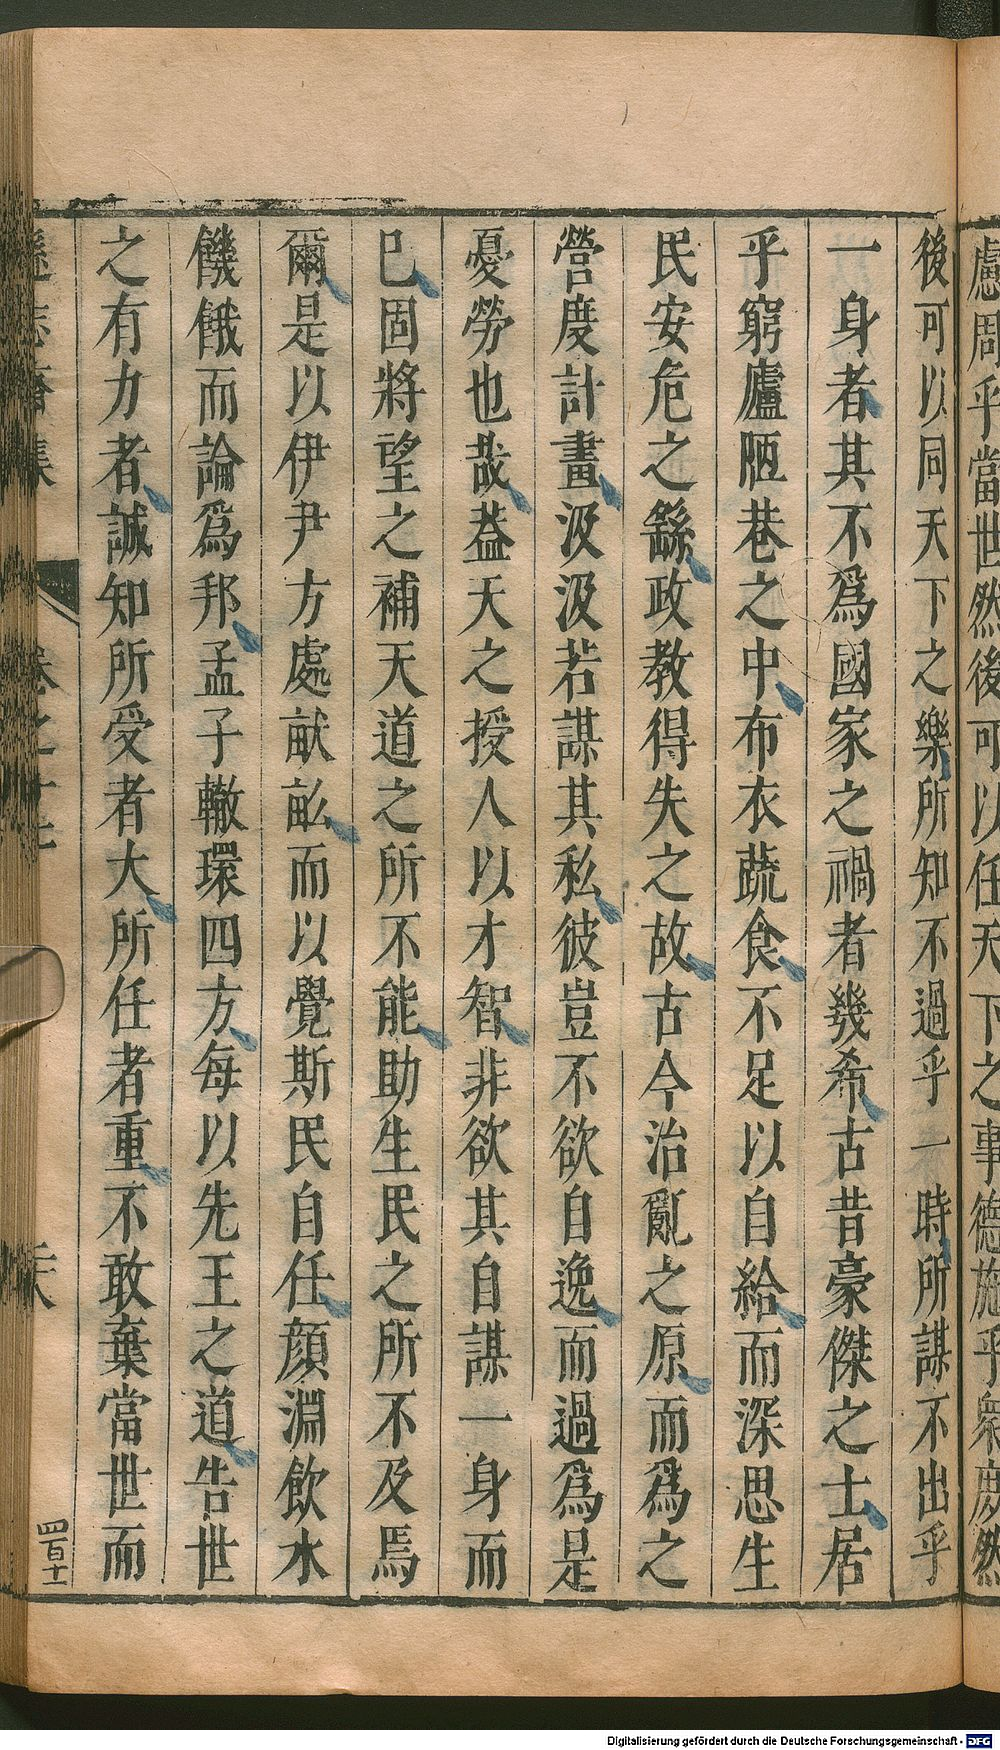 慮周乎當世然後可以任天下之事德施乎衆庶然
後可以同天下之樂所知不過乎一時所謀不出乎
一身者其不爲國家之禍者幾希古昔豪傑之士居
乎窮廬陋巷之中布衣蔬食不足以自給而深思生
民安危之繇政教得失之故古今治亂之原而爲之
營度計畫汲汲若謀其私彼豈不欲自逸而過爲是
憂勞也哉葢天之授人以才智非欲其自謀一身而
已固將望之補天道之所不能助生民之所不及焉
爾是以伊尹方處畎畝而以覺斯民自任顔淵飲水
饑餓而論爲邦孟子轍環四方每以先王之道告世
之有力者誠知所受者大所任者重不敢棄當世而
遜志齋集
卷之十
四百十一
Digitalisierung gefördert durch die Deutsche Forschungsgemeinschaft - DFG